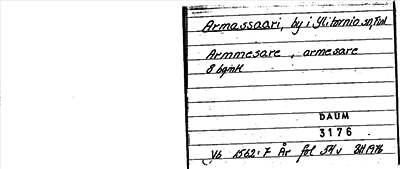 Armassaari, by i Ylitornio sn, Finl
Armmesare, armesare
8 bönd
DAUM
3176
Vb 1562:7 År fol 54v